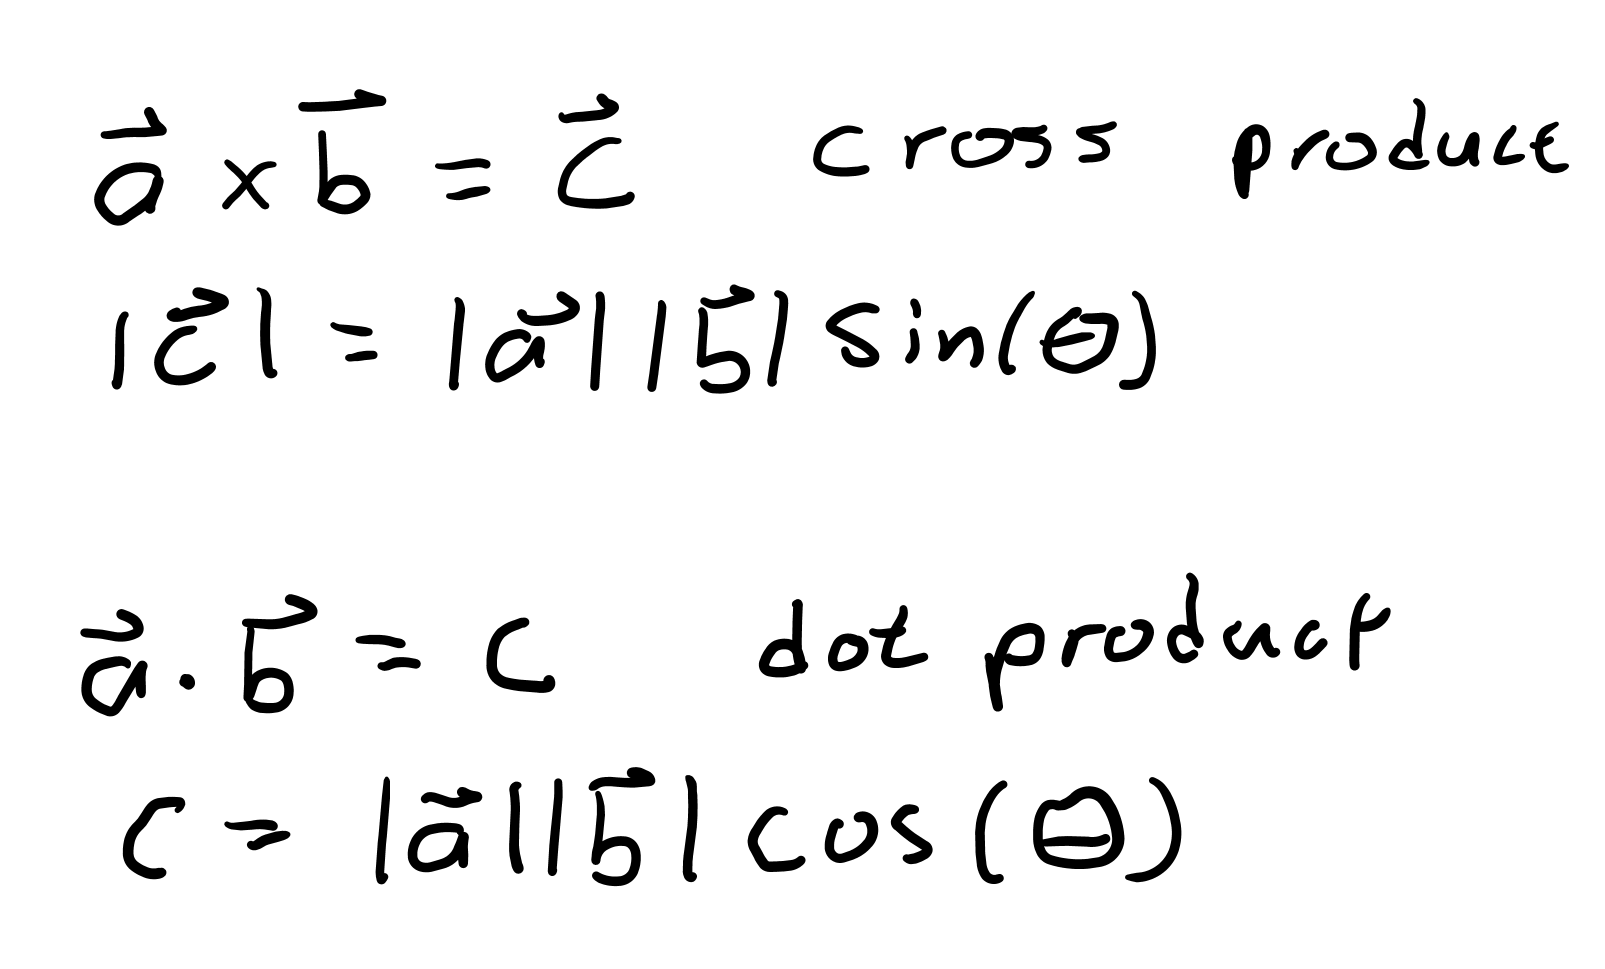 a⃗ × b⃗ = c⃗ cross product
|c⃗| = |a⃗||b⃗| sin(θ)
a⃗ · b⃗ = c dot product
c = |a⃗||b⃗| cos(θ)